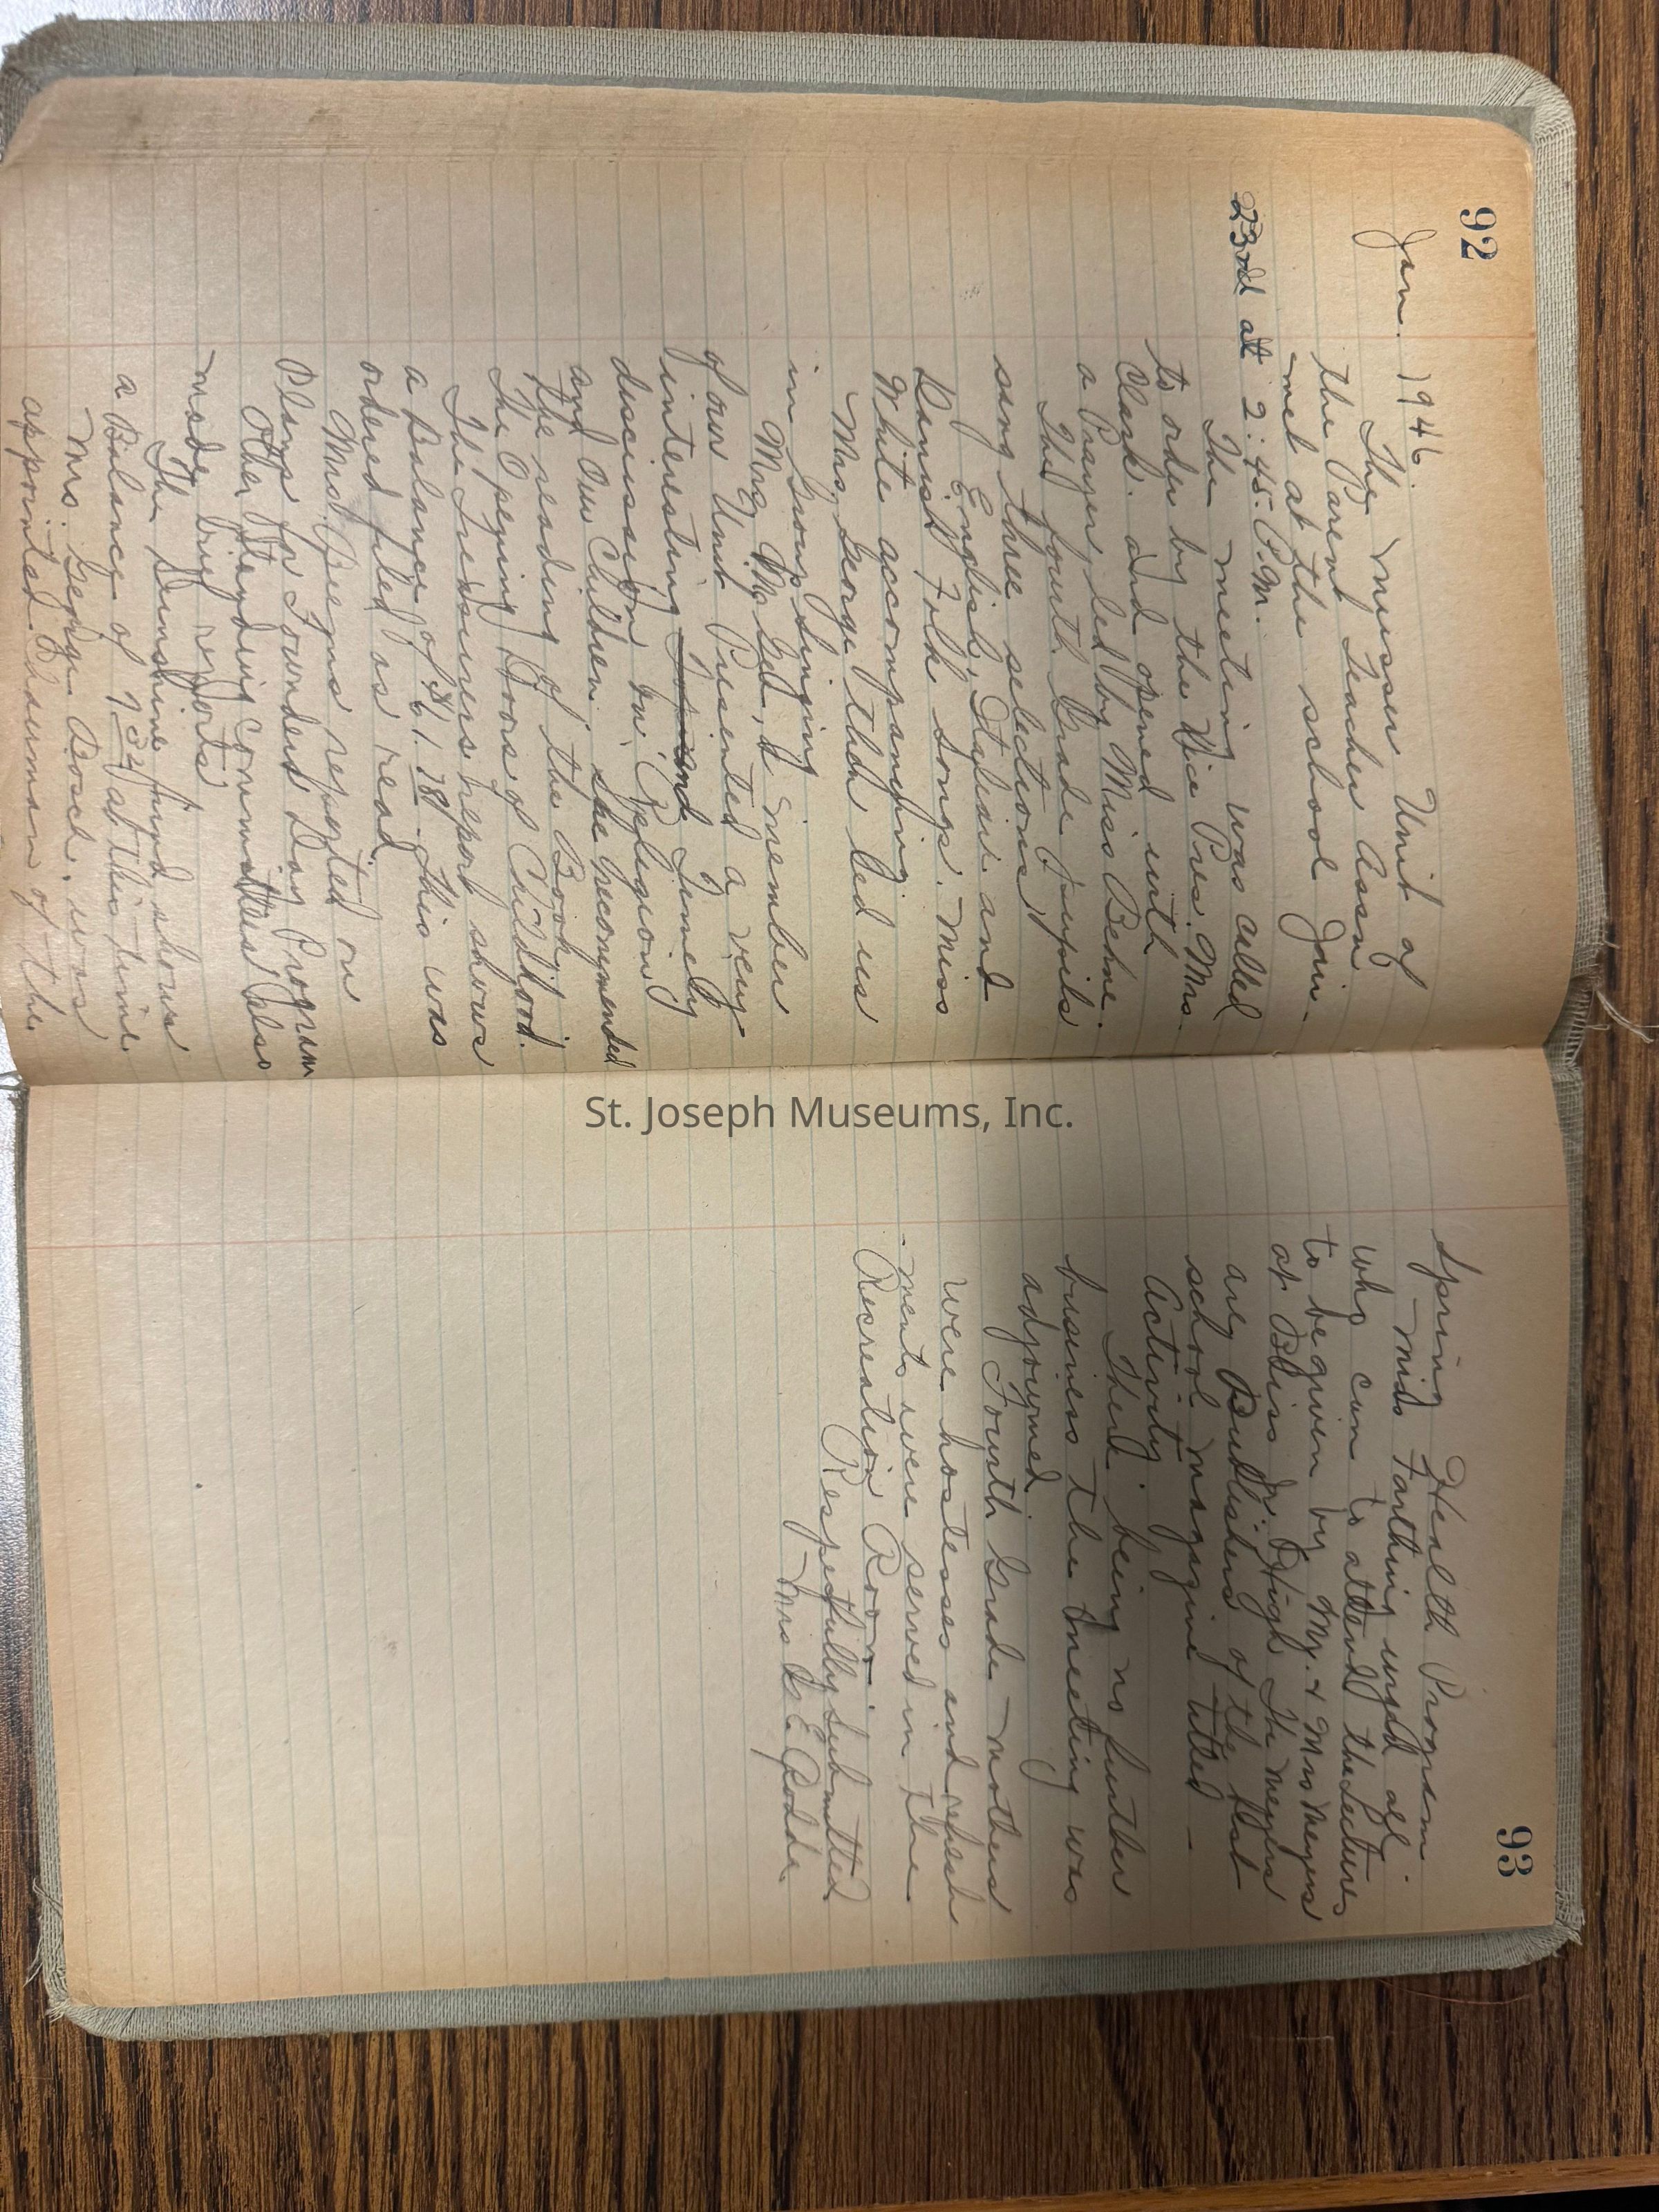 92
Jan. 1946.
The Musser Unit of
the Parent Teacher Assn
met at the school Jan.
23rd at 2:45. P.M.
The meeting was called
to order by the Vice Pres. Mrs.
Clark. and opened with
a Prayer led by Miss Behne.
The fourth Grade pupils
sang three selections,
English, Italian and
Danish Folk songs. Miss
White accompanying
Mrs. George then led us
in Group Singing
Mrs. , a member
of our Unit Presented a very
interesting and Timely
discussion on, "Religion
and Our Children. she recommended
the reading of the Book,
The Opening Doors of Childhood.
The Treasurers report shows
a Balance of $61.78. This was
ordered filed as read
Mrs. reported on
Plans for Founders Day Program
Other Standing Committees also
made brief reports
The Sunshine fund shows
a Balance of 7.32 at this time.
Mrs. George Bosch. was
appointed Chairman of the
93
Spring Health Program.
Miss Farthing urged all
who can to attend the Lectures
to be given by Mr. & Mrs Meyers
at Bliss Jr. High. The Meyers
are Publishers of the
school magazine titled -
Activity.
There being no further
business the meeting was
adjourned
Fourth Grade Mothers
were hostesses and refresh
-ments were served in the
Recreation Room.
Respectfully Submitted
Mrs L. E. Podde
St. Joseph Museums, Inc.